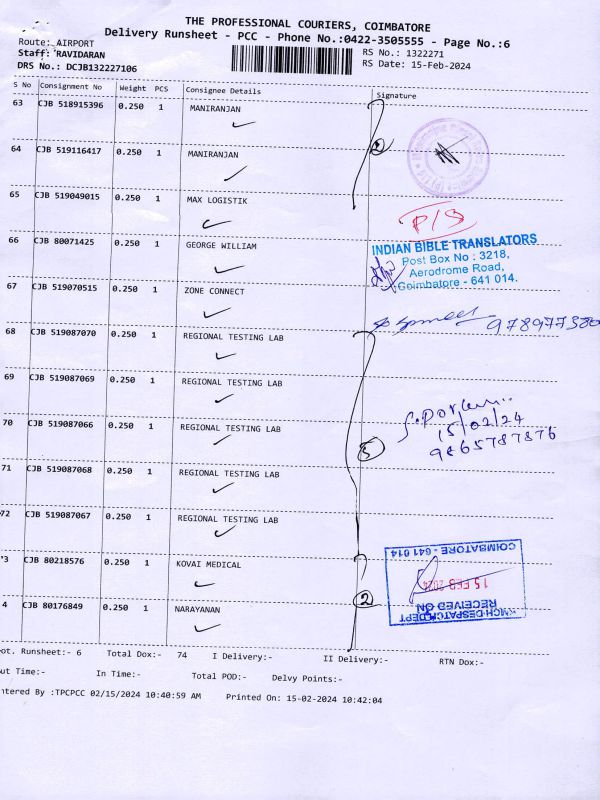 THE PROFESSIONAL COURIERS, COIMBATORE
Delivery Runsheet - PCC - Phone No.:0422-3505555 - Page No.:6
Route: AIRPORT
Staff: RAVIDARAN
DRS No.: DCJB132227106
RS No.: 1322271
RS Date: 15-Feb-2024
S No Consignment No Weight PCS Consignee Details Signature
63 CJB 518915396 0.250 1 MANIRANJAN
64 CJB 519116417 0.250 1 MANIRANJAN
65 CJB 519049015 0.250 1 MAX LOGISTIK
P/S
66 CJB 80071425 0.250 1 GEORGE WILLIAM
INDIAN BIBLE TRANSLATORS
Post Box No : 3218,
Aerodrome Road,
Coimbatore - 641 014.
67 CJB 519070515 0.250 1 ZONE CONNECT
68 CJB 519087070 0.250 1 REGIONAL TESTING LAB
69 CJB 519087069 0.250 1 REGIONAL TESTING LAB
70 CJB 519087066 0.250 1 REGIONAL TESTING LAB
15/02/24
9865787876
5
71 CJB 519087068 0.250 1 REGIONAL TESTING LAB
72 CJB 519087067 0.250 1 REGIONAL TESTING LAB
'3 CJB 80218576 0.250 1 KOVAI MEDICAL
4 CJB 80176849 0.250 1 NARAYANAN
2
KMCH-DESPATCH DEPT
RECEIVED ON
15 FEB 2024
COIMBATORE - 641 014
ot. Runsheet:- 6 Total Dox:- 74 I Delivery:- II Delivery:- RTN Dox:-
ut Time:- In Time:- Total POD:- Delvy Points:-
ntered By :TPCPCC 02/15/2024 10:40:59 AM Printed On: 15-02-2024 10:42:04